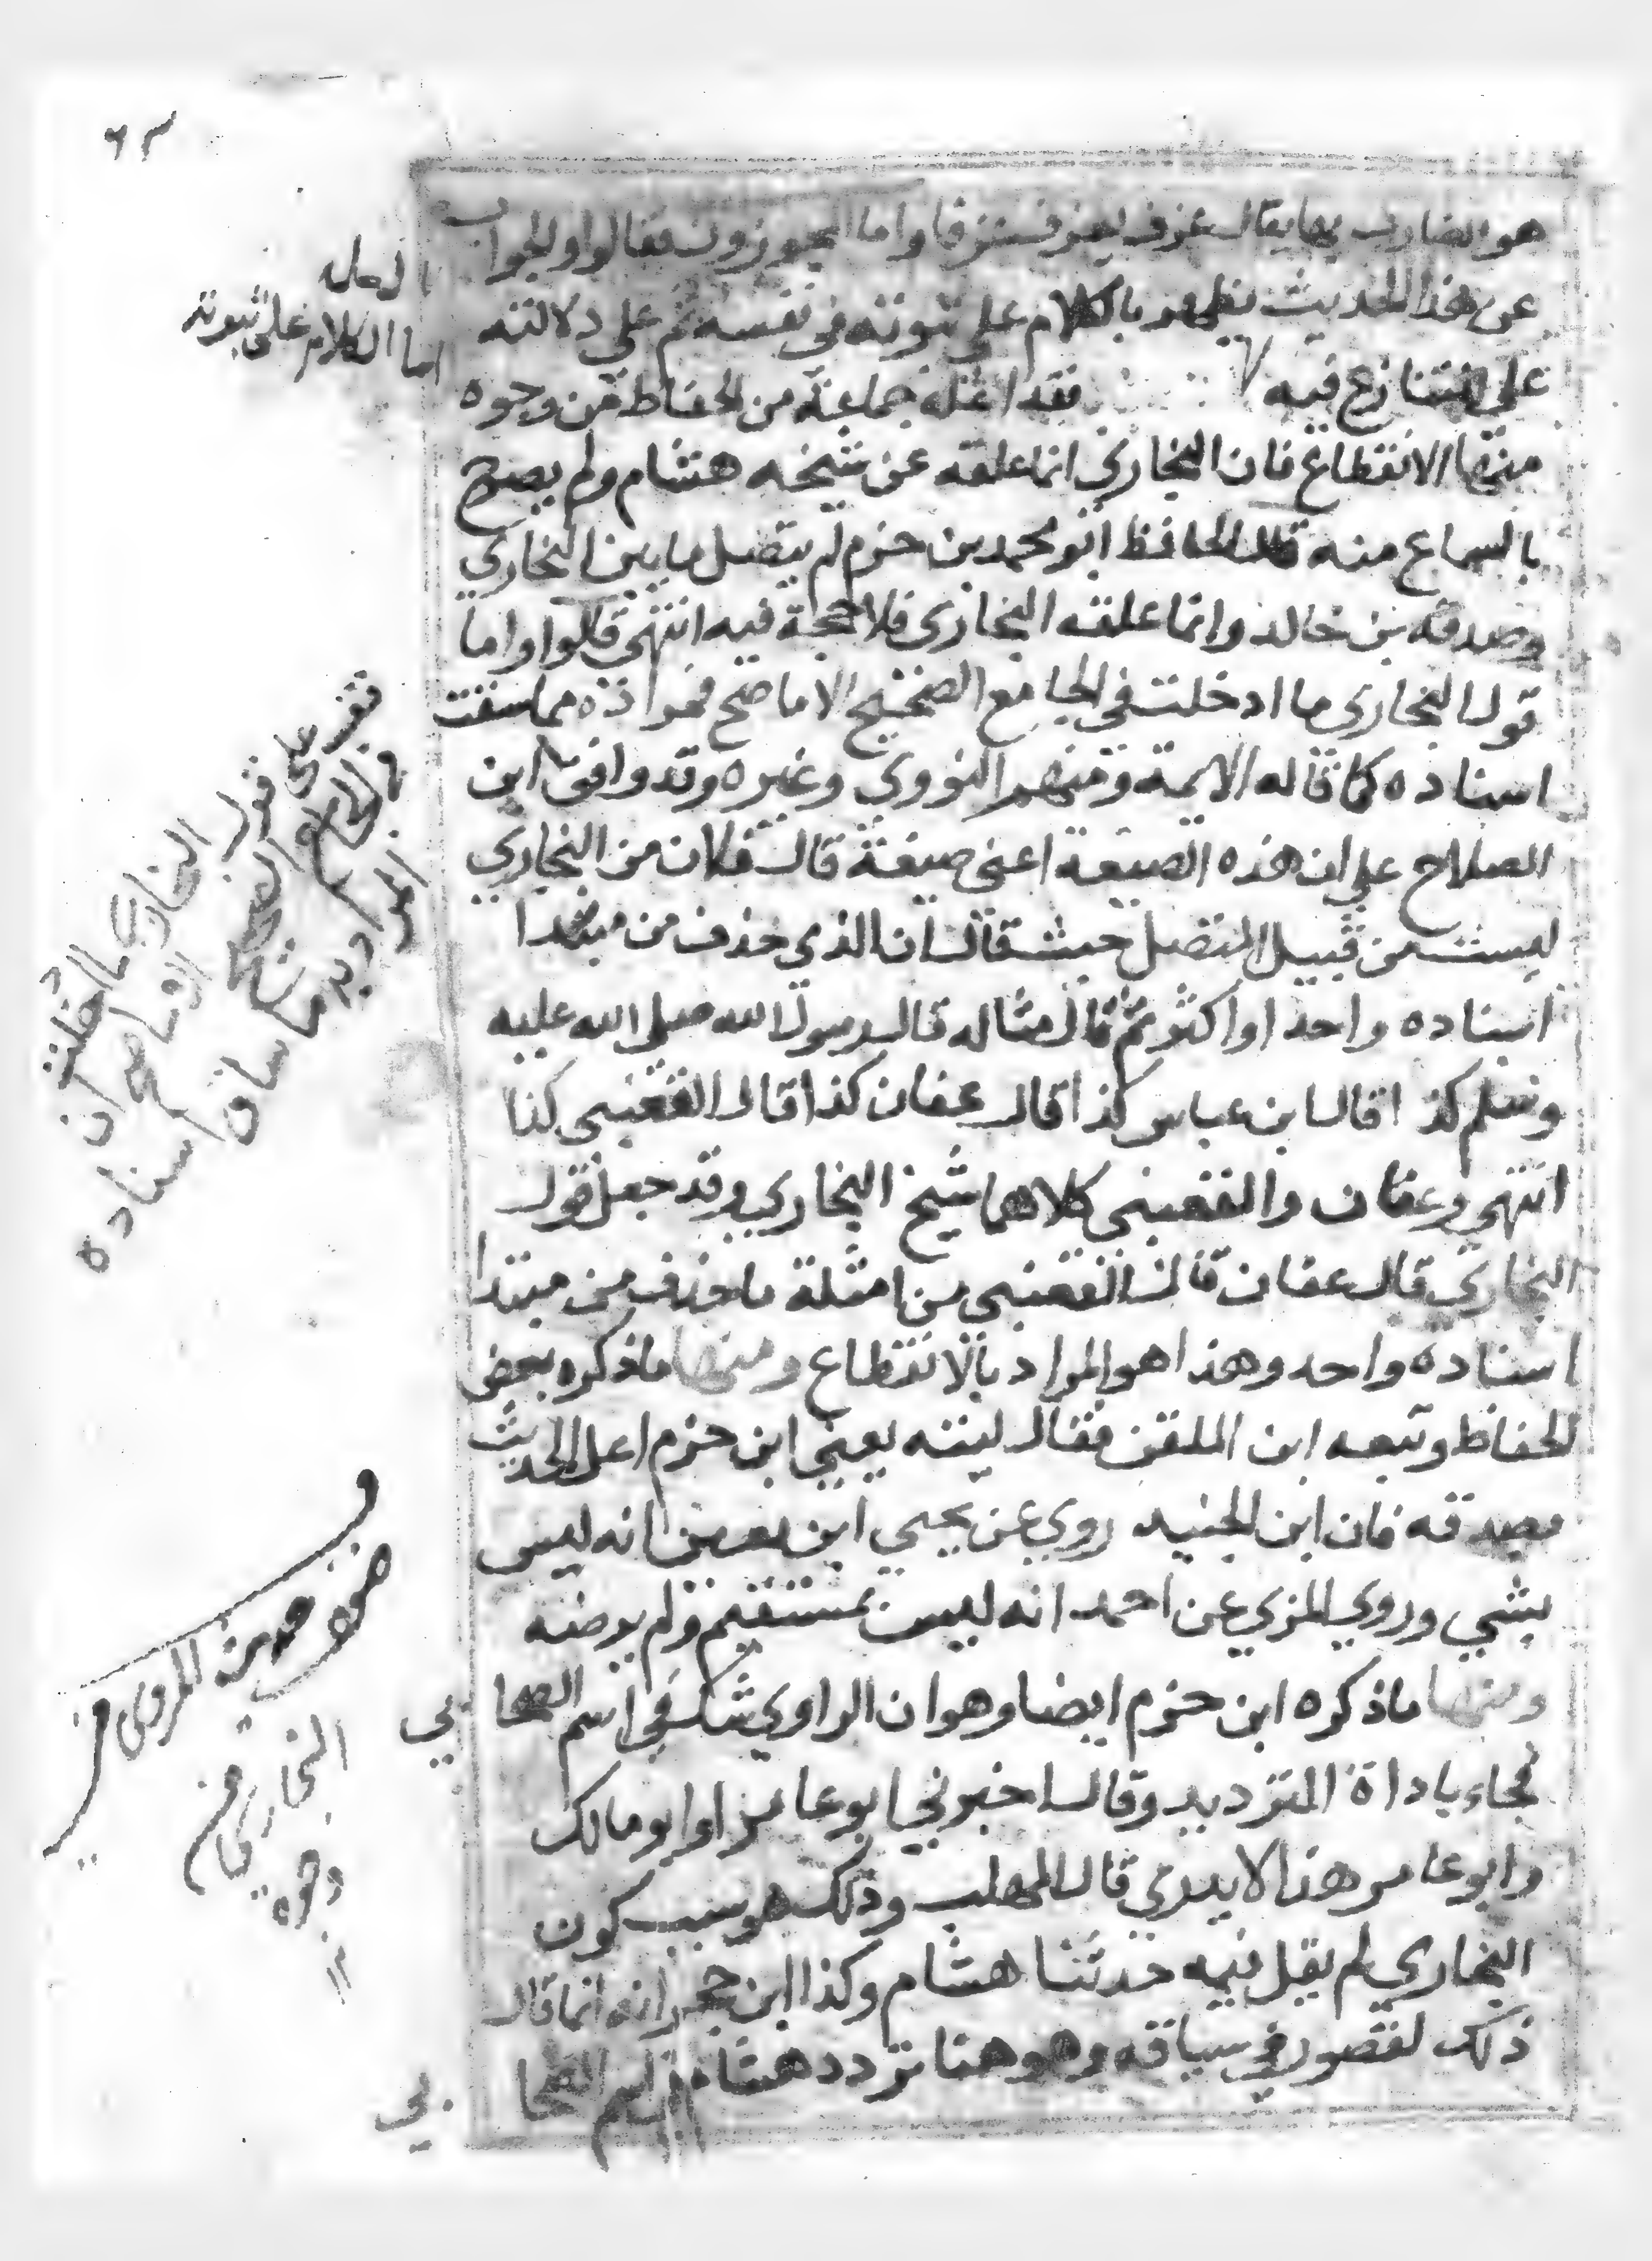 ٦٣
هو الضارب بها يقال عزف يعزف عزفا واما المجوزون فقالوا والجواب
عن هذا الحديث يظهر بالكلام على ثبوته في نفسه ثم علي دلالته
علي المتنازع فيه فقد اعله جماعة من الحفاظ من وجوه
اما الكلام على ثبوته
منها الانقطاع فان البخاري انما علقه عن شيخه هشام ولم يصرح
بالسماع منه قال الحافظ ابو محمد بن حزم لم يتصل ما بين البخاري
وصدقة بن خالد وانما علقه البخاري فلا حجة فيه انتهى قالوا واما
قول البخاري ما ادخلت في الجامع الصحيح الا ما صح فمراده مما سقت
اسناده كما قاله الايمة ومنهم النووي وغيره وقد وافق ابن
الصلاح على ان هذه الصيغة اعني صيغة قال فلان من البخاري
ليست من قبيل المتصل حيث قال ان الذي حذف من مبتدا
اسناده واحد او اكثر ثم قال مثاله قال رسول الله صلى الله عليه
وسلم كذا قال ابن عباس كذا قال عفان كذا قال القعنبي كذا
انتهى وعفان والقعنبي كلاهما شيخ البخاري وقد جعل قول
البخاري قال عفان قال القعنبي من امثلة ما حذف من مبتدا
اسناده واحد وهذا هو المراد بالانقطاع ومنها ما ذكره بعض
الحفاظ وتبعه ابن الملقن فقال ليته يعني ابن حزم اعل الحديث
بصدقه فان ابن الجنيد روي عن يحيي ابن معين انه ليس
بشي وروي المزي عن احمد انه ليس بمستقيم ولم يرضه
ومنها ما ذكره ابن حزم ايضا وهو ان الراوي شك في اسم الصحابي
فجاء باداة التزديد وقال اخبرني ابو عامر او ابو مالك
وابو عامر هذا لا يدري قال المهلب وذلك هو سبب كون
البخاري لم يقل فيه حدثنا هشام وكذا ابن حجر انه انما قال
ذلك لقصور في سياقه وهو هنا تردد هشام في اسم الصحابي
فقف على قول البخاري ما ادخلت
في الجامع الصحيح الا ما صح ان
المراد به ما ساق اسناده
قف
ضعف حديث المروي في
البخاري من
وجوه